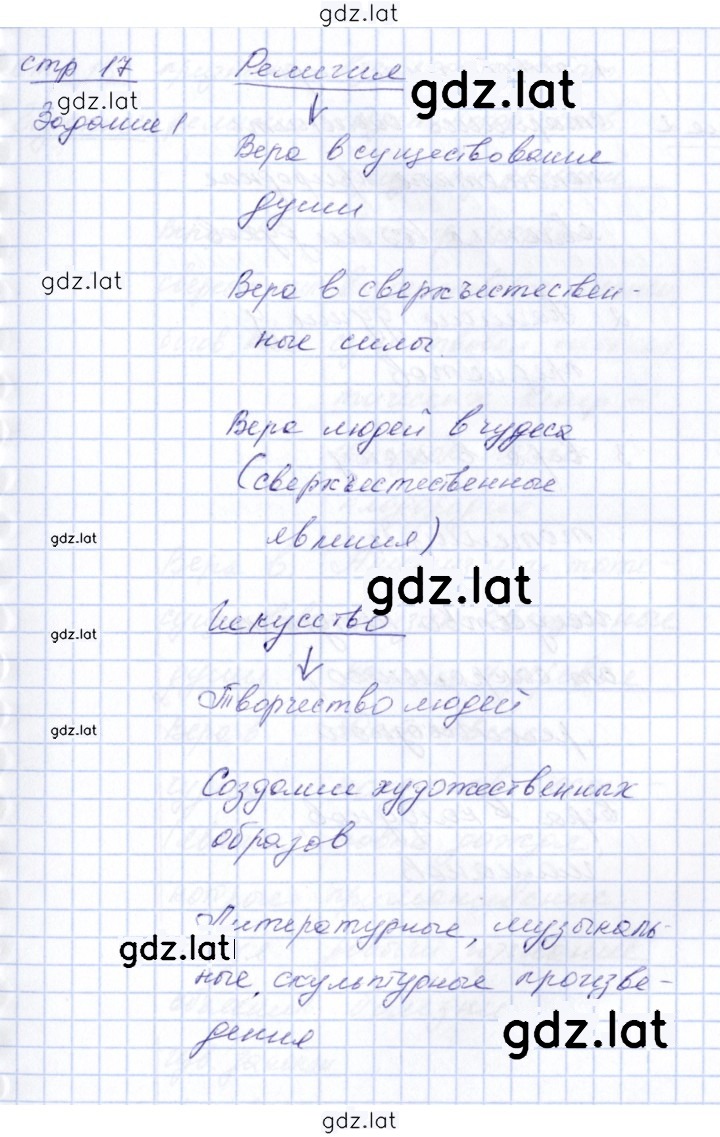 gdz.lat
стр 17 Религия
gdz.lat gdz.lat
Задание 1
Вера в существование
души
gdz.lat
Вера в сверхъестествен-
ные силы.
Вера людей в чудеса
(сверхъестественные
gdz.lat
явления)
gdz.lat
Искусство
gdz.lat
Творчество людей
gdz.lat
Создание художественных
образов
Литературные, музыкаль-
gdz.lat
ные, скульптурные произве-
дения
gdz.lat
gdz.lat